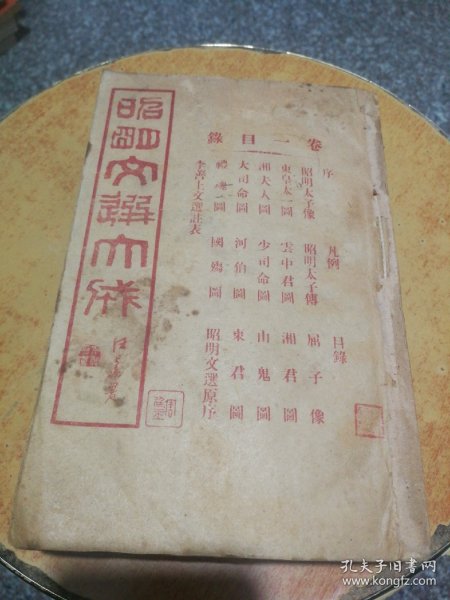 卷一目錄
序 凡例 目錄
昭明太子像 昭明太子傳 屈子像
東皇太一圖 雲中君圖 湘君圖
湘夫人圖 少司命圖 山鬼圖
大司命圖 河伯圖 東君圖
禮魂圖 國殤圖 昭明文選原序
李善上文選註表
昭明文選大成
孔夫子旧书网
www.kongfz.com